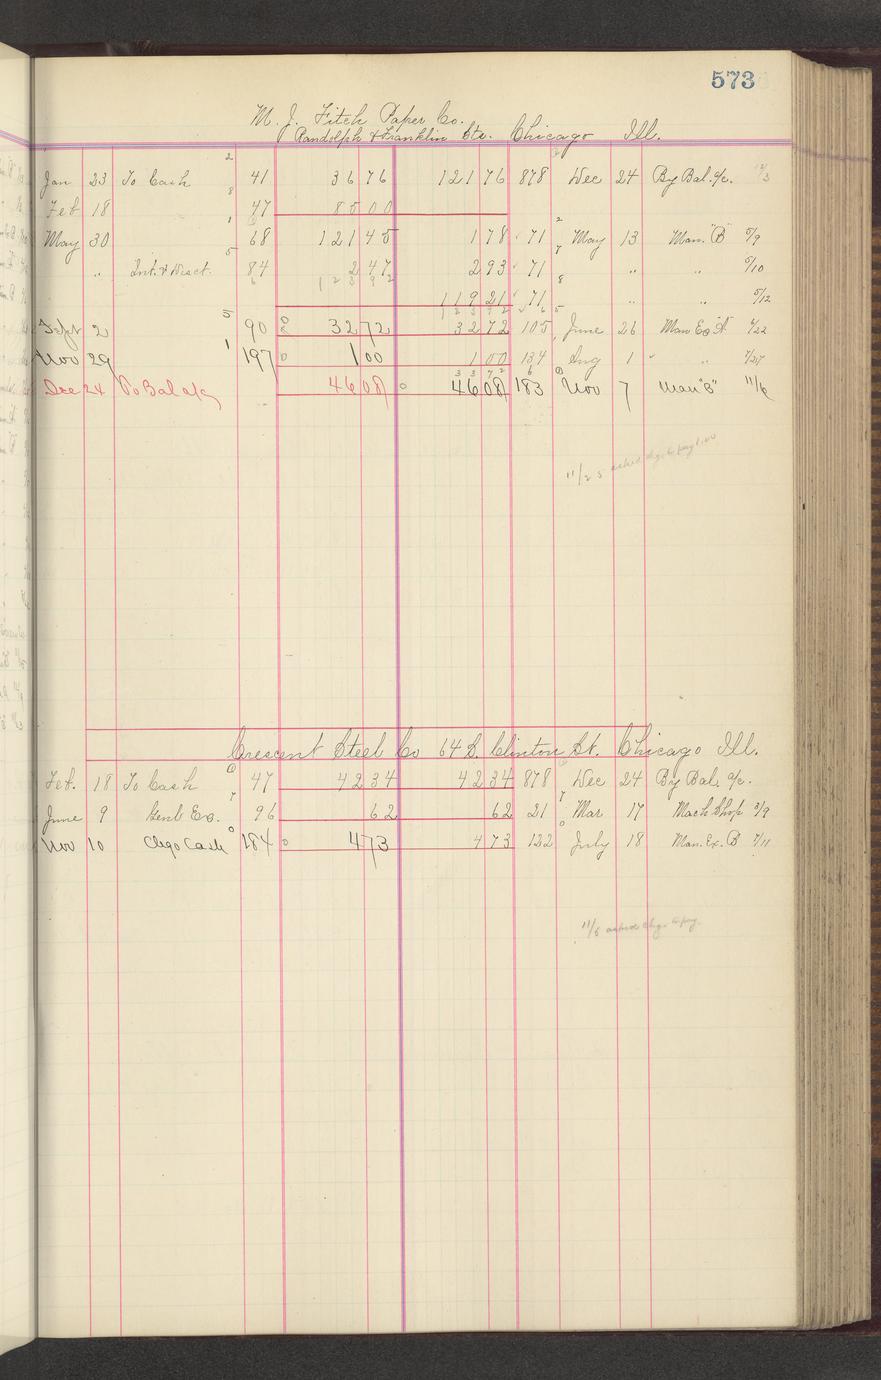 573
M. J. Fitch Paper Co.
Randolph & Franklin Sts. Chicago Ill.
Jan 23 To Cash 2 41 36 76 121 76 878 Dec 24 By Bal. a/c. 12/3
Feb 18 8 47 85 00
May 30 1 68 121 45 1 78 71 2 May 13 Man. "B" 5/9
" Int. & Disct. 5 84 2 47 2 93 71 7 " " 5/10
123 92 119 21 71 8 " " 5/12
123 92
Sept 2 5 90 32 72 32 72 105 June 26 Man Ex "A" 6/22
Nov 29 1 197 1 00 1 00 134 Aug 1 " " 7/27
33 72
Dec 24 To Bal a/c 46 08 46 08 183 Nov 7 Man "B" 11/6
11/25 asked chgo to pay 1.00
Crescent Steel Co 64 S. Clinton St. Chicago Ill.
Feb. 18 To Cash 0 47 42 34 42 34 878 Dec 24 By Bal. a/c.
June 9 Genl Ex. 7 96 62 62 21 7 Mar 17 Mach Shop 3/9
Nov 10 Chgo Cash 0 184 4 73 4 73 122 0 July 18 Man. Ex. B 7/11
11/6 asked chgo to pay.